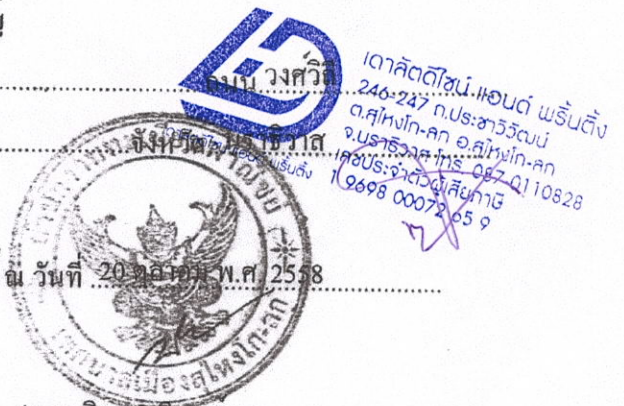 ถนน วงศ์วิถี
จังหวัด นราธิวาส
ณ วันที่ 20 ตุลาคม พ.ศ. 2558
เดาลัตดีไซน์ แอนด์ พริ้นติ้ง
246-247 ถ.ประชาวิวัฒน์
ต.สุไหงโก-ลก อ.สุไหงโก-ลก
จ.นราธิวาส โทร. 087-0110828
เลขประจำตัวผู้เสียภาษี
1 9698 00072 65 9
เทศบาลเมืองสุไหงโก-ลก